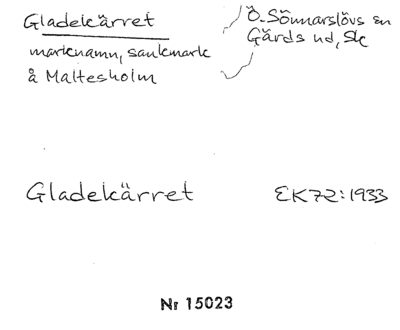 Gladekärret
marknamn, sankmark
å Maltesholm
Ö. Sönnarslövs sn
Gärds hd, Sk
Gladekärret EK72:1933
Nr 15023